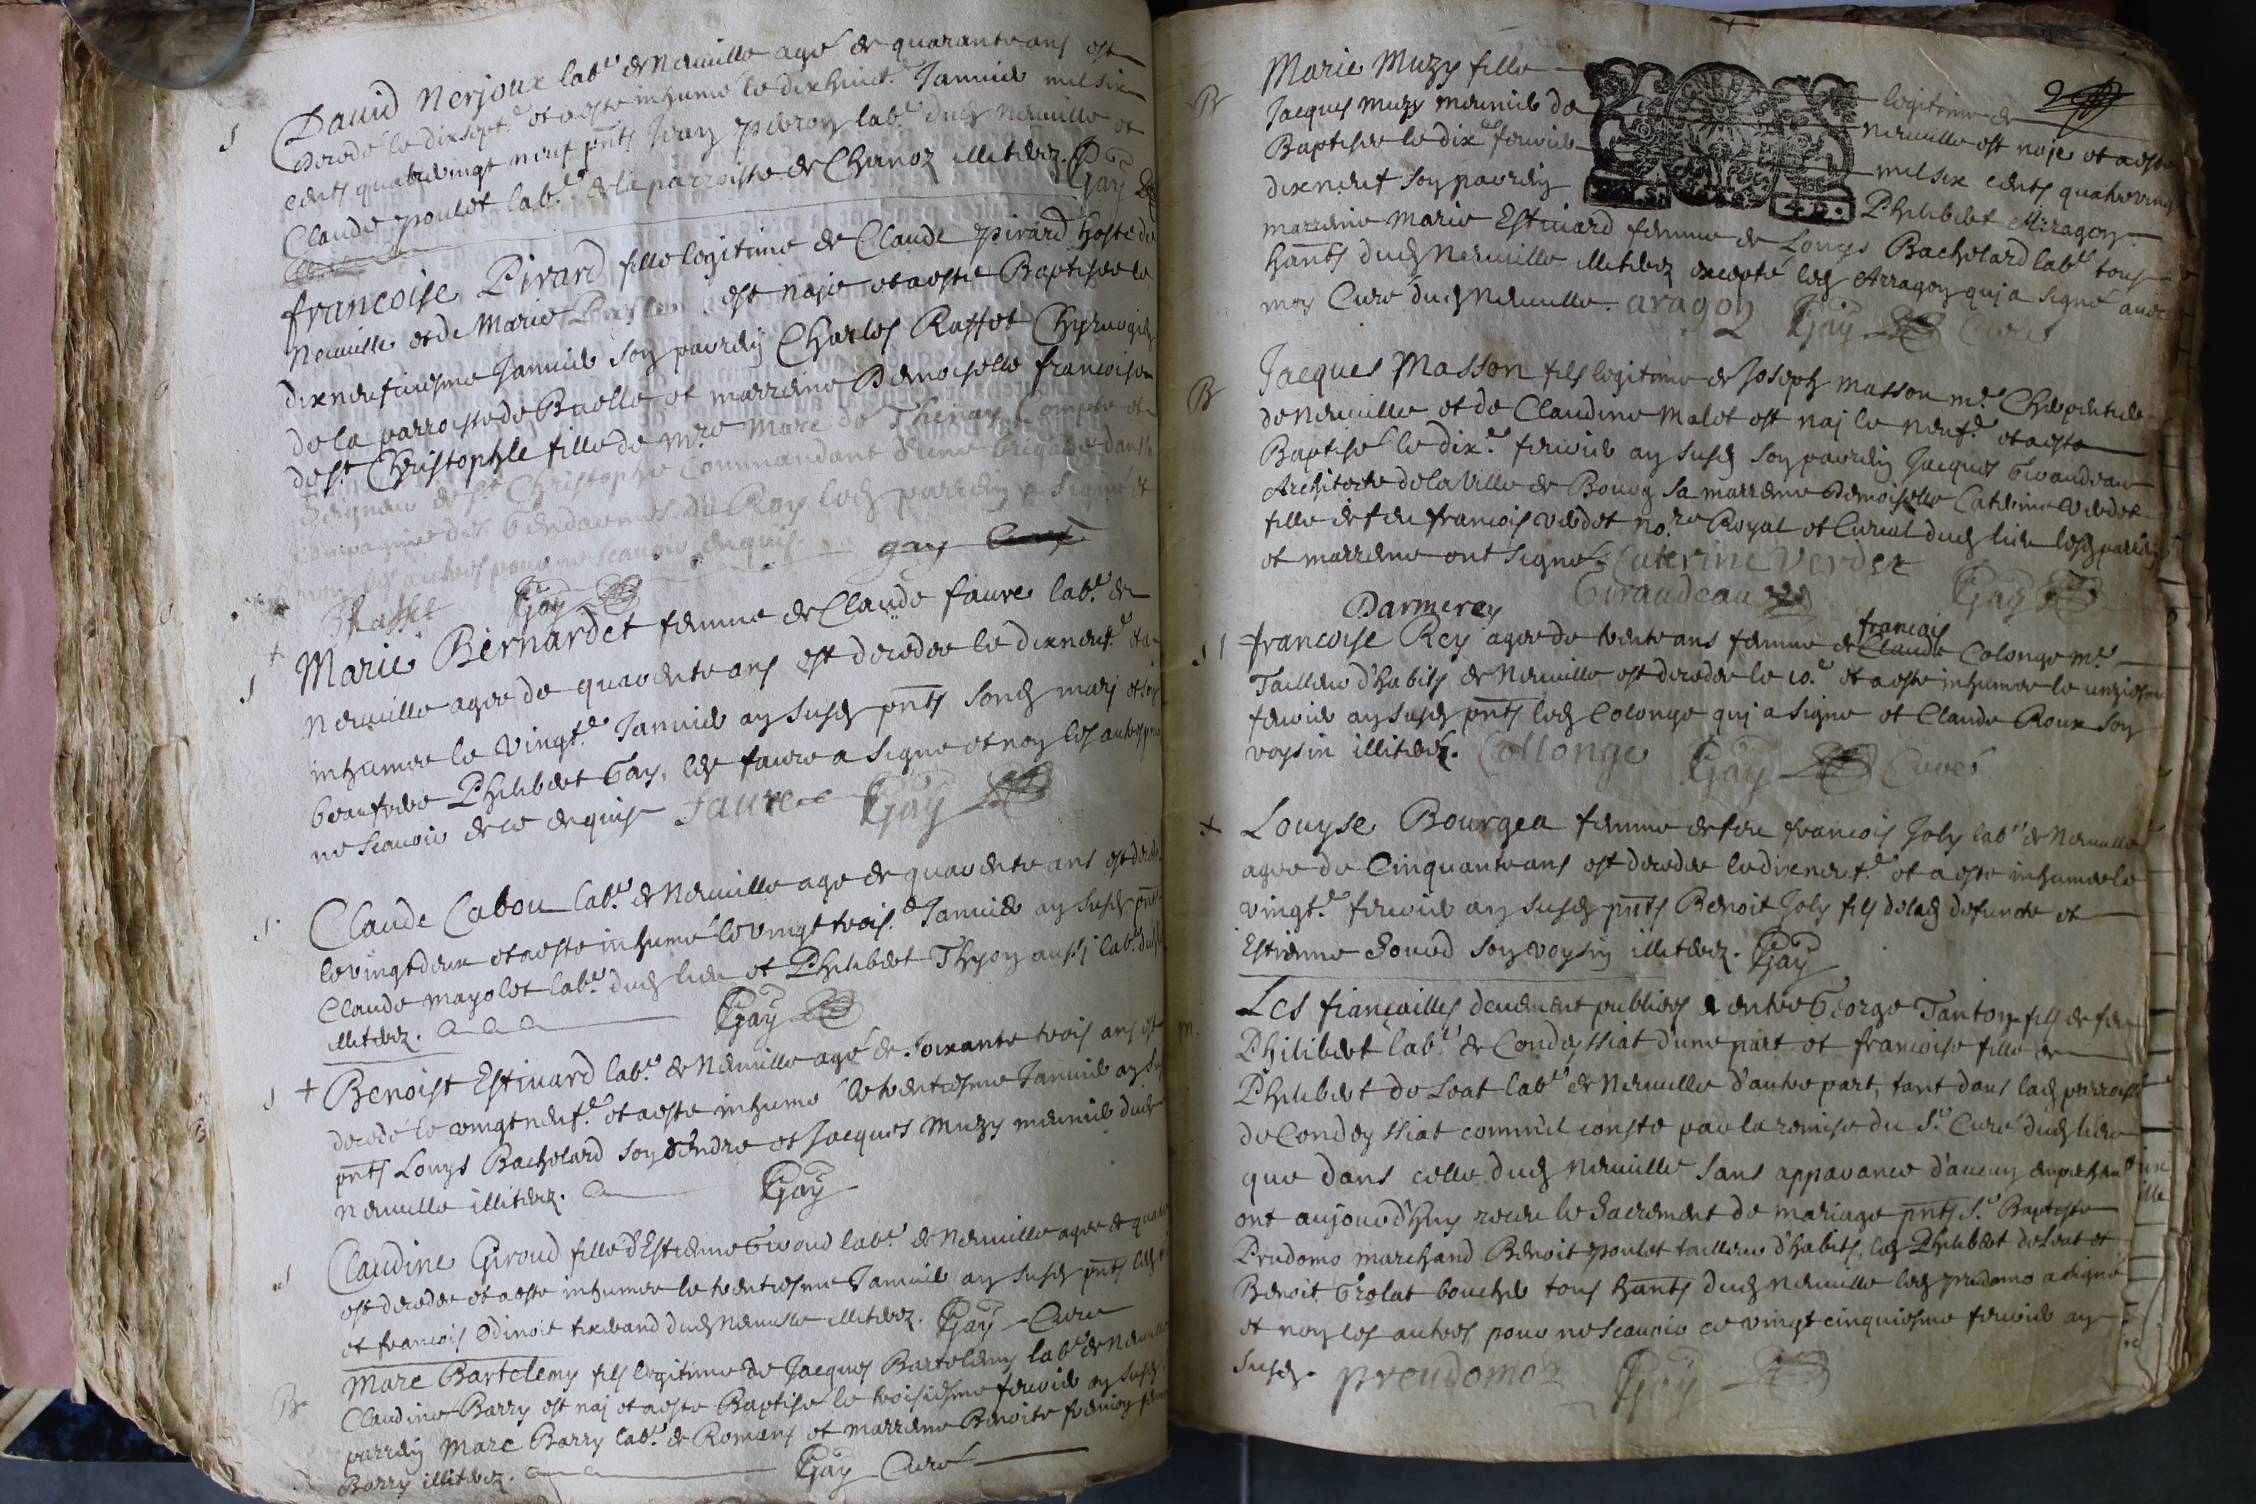 David Nerjoux lab.r de Neuuille agé de quarante ans est
decedé le dixsept.e et a esté inhumé le dixhuict.e Januier mil six
cents quatrevingt neuf pnts Jean lab.r dud Neuuille et
Claude poulet lab.r de la parroisse de Chanoz illiterez. Gay
françoise Pirard fille legitime de Claude pirard hoste de
Neuuille et de Marie est naye et a esté Baptisée le
dixneufuiesme Januier son parrein Charles Raffet Chyrurgien
de la parroisse de Buelle et marreine Demoiselle francoise
de St Christophle fille de mre Marc de Thenay Compte et
Seigneur de St Christophle Commandant d'une brigade dans la
compagnie des Gendarmes du Roy led parrein a signé et
non les autres pour ne scauoir enquis. gay Curé
Raffet Gay
Marie Bernardet femme de Claude faure lab.r de
Neuuille agée de quarente ans est decedée le dixneuf.e et a
inhumée le vingt.e Januier an susd pnts sond mary et son
beaufrere Philibert Gay, led faure a signé et non les autres pour
ne scauoir de ce enquis faure Gay
Claude Cabou lab.r de Neuuille agé de quarente ans est decedé
le vingtdeux et a esté inhumé le vingt trois.e Januier an susd pnts
Claude mayolet lab.r dud lieu et Philibert Thyon aussi lab.r dud
illiterez. Gay
Benoist Estiuard lab.r de Neuuille agé de soixante trois ans est
decedé le vingtneuf.e et a esté inhumé le trentiesme Januier an
pnts Louys Bachelard son gendre et Jacques Muzy meunier dud
Neuuille illiterez. Gay
Claudine Giroud fille d'Estienne Giroud lab.r de Neuuille agée de
est decedée et a esté inhumée le trentiesme Januier an susd pnts led
et francois Odinoit tixerand dud Neuuille illiterez. Gay Curé
Marc Bartelemy fils legitime de Jacques Bartelemy lab.r de Neuuille
Claudine Barry est naj et a esté Baptisé le troisiesme feurier an susd
parrein Marc Barry lab.r de Romans et marreine Benoite
Barry illiterez. Gay Curé
Marie Muzy fille legitime de
Jacques Muzy meunier de Neuuille est naje et a esté
Baptisée le dix.e feurier mil six cents quatreuingt
dixneuf son parrein Philibert Arragon
marreine Marie Estiuard femme de Louys Bachelard lab.r tous
hants dud Neuuille illiterez excepté led Arragon quj a signé auec
moy Curé dud Neuuille. aragon Gay Curé
Jacques Masson fils legitime de Joseph Masson m.e Charpentier
de Neuuille et de Claudine Malet est naj le neuf.e et a esté
Baptisé le dix.e feurier an susd son parrein Jacques Giraudeau
Architecte de la Ville de Bourg sa marreine Demoiselle Caterine Verdet
fille de feu francois Verdet no.re Royal et Curial dud lieu lesd parrein
et marreine ont signé. Caterine Verdet
Giraudeau Gay
Darmerey
francois
francoise Rey agée de trente ans femme de Claude Colonge m.e
Tailleur d'habits de Neuuille est decedée le 10.e et a esté inhumée le unziesme
feurier an susd pnts led Colonge quj a signé et Claude Roux son
voysin illiterez. Collonge Gay Curé
Louyse Bourgea femme de feu francois Joly lab.r de Neuuille
agée de Cinquante ans est decedée le dixneuf.e et a esté inhumée le
vingt.e feurier an susd pnts Benoit Joly fils de lad defuncte et
Estienne son voysin illiterez. Gay
Les fiançailles deuement publiées entre George Tanton fils de feu
Philibert lab.r de Condeyssiat d'une part et francoise fille de
Philibert de Leat lab.r de Neuuille d'autre part, tant dans lad parroisse
de Condeyssiat comm'il conste par la remise du S.r Curé dud lieu
que dans celle dud Neuuille sans apparance d'aucun empechement
ont aujourd'huy receu le Sacrement de mariage pnts S.r Baptiste
Prudomo marchand Benoit poulet tailleur d'habits, led Philibert de Leat et
Benoit Grolat boucher tous hants dud Neuuille led prudomo a signé
et non les autres pour ne scauoir ce vingt cinquiesme feurier an
susd. preudomoz Gay